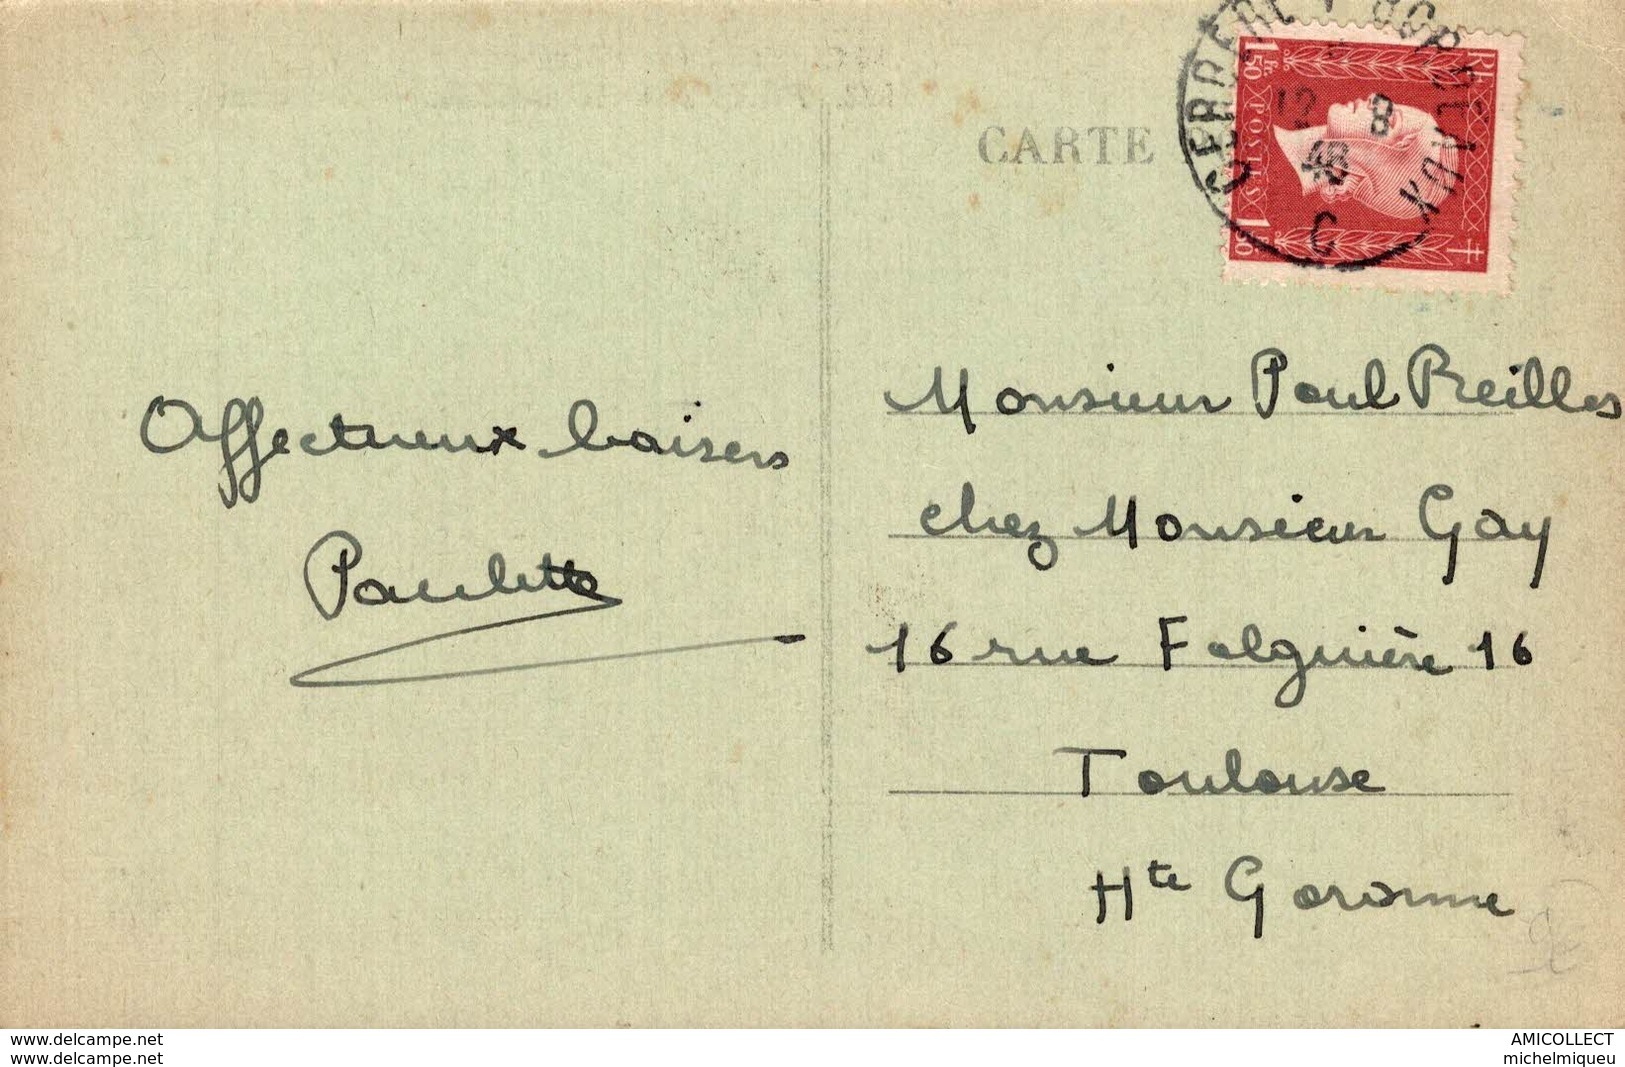 CARTE
CERBERE A BORDEAUX
12 8
C
RF
1F50 POSTES 1F50
Affectueux baisers
Paulette
Monsieur Paul Reilles
chez Monsieur Gay
16 rue Falguière 16
Toulouse
Hte Garonne
delcampe.net
delcampe.net
AMICOLLECT
michelmiqueu